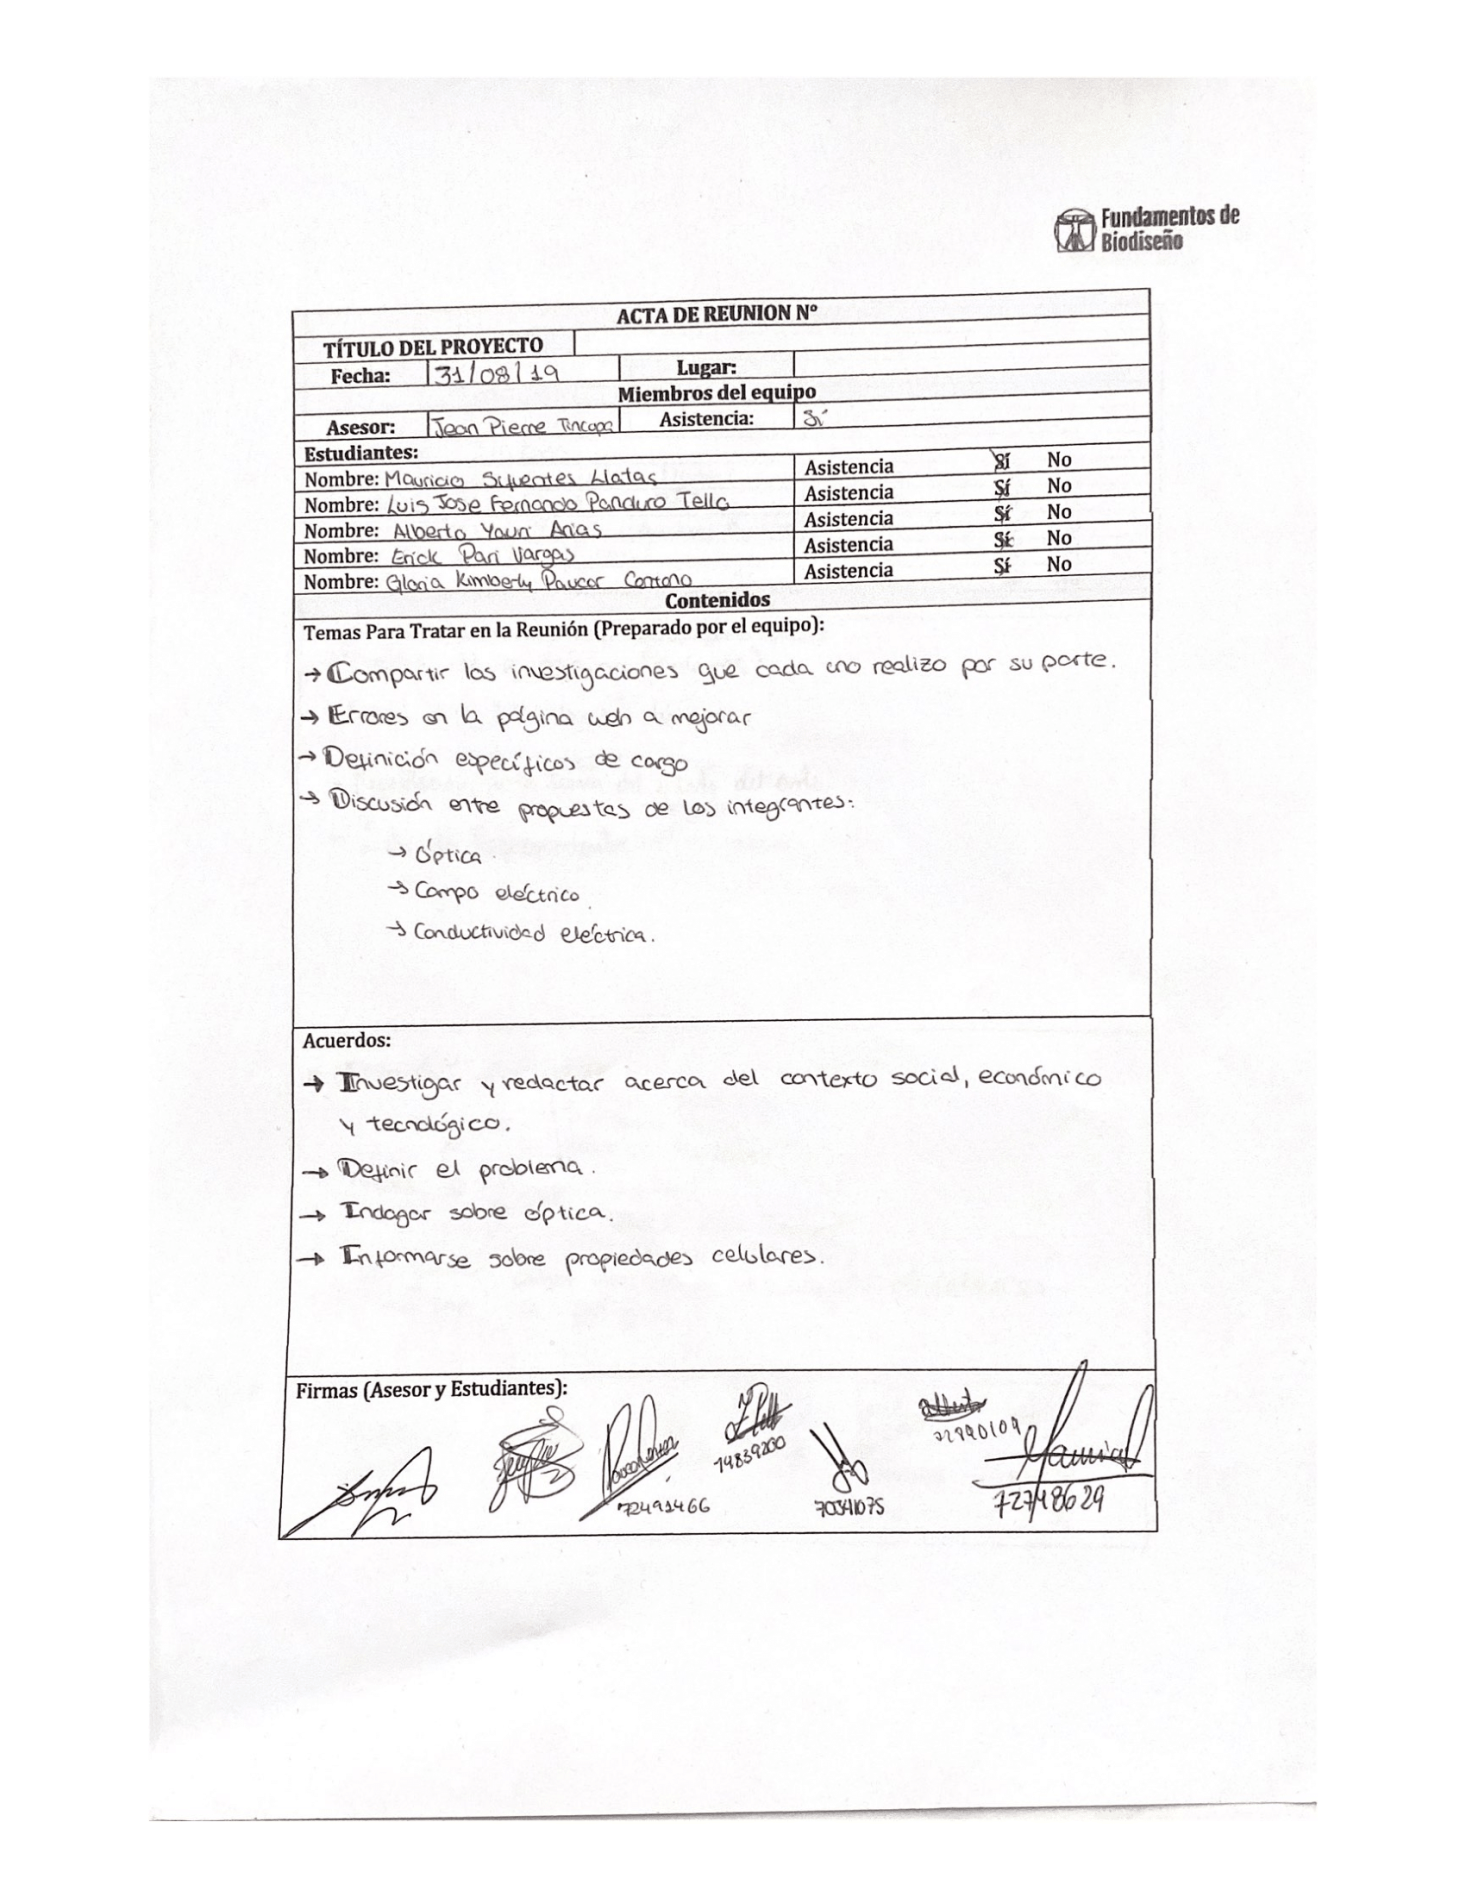 Fundamentos de
Biodiseño
ACTA DE REUNION Nº
TÍTULO DEL PROYECTO
Fecha: 31/08/19 Lugar:
Miembros del equipo
Asesor: Jean Pierre Tincopa Asistencia: Sí
Estudiantes:
Nombre: Mauricio Sifuentes Llatas Asistencia Sí No
Nombre: Luis Jose Fernando Panduro Tello Asistencia Sí No
Nombre: Alberto Yauri Arias Asistencia Sí No
Nombre: Erick Pari Vargas Asistencia Sí No
Nombre: Gloria Kimberly Paucar Asistencia Sí No
Contenidos
Temas Para Tratar en la Reunión (Preparado por el equipo):
→ Compartir las investigaciones que cada uno realizo por su parte.
→ Errores en la página web a mejorar
→ Definición específicos de cargo
→ Discusión entre propuestas de los integrantes:
→ Óptica
→ Campo eléctrico.
→ Conductividad eléctrica.
Acuerdos:
→ Investigar y redactar acerca del contexto social, económico
y tecnológico.
→ Definir el problema.
→ Indagar sobre óptica.
→ Informarse sobre propiedades celulares.
Firmas (Asesor y Estudiantes):
74839200
72491466
70341075
72748629